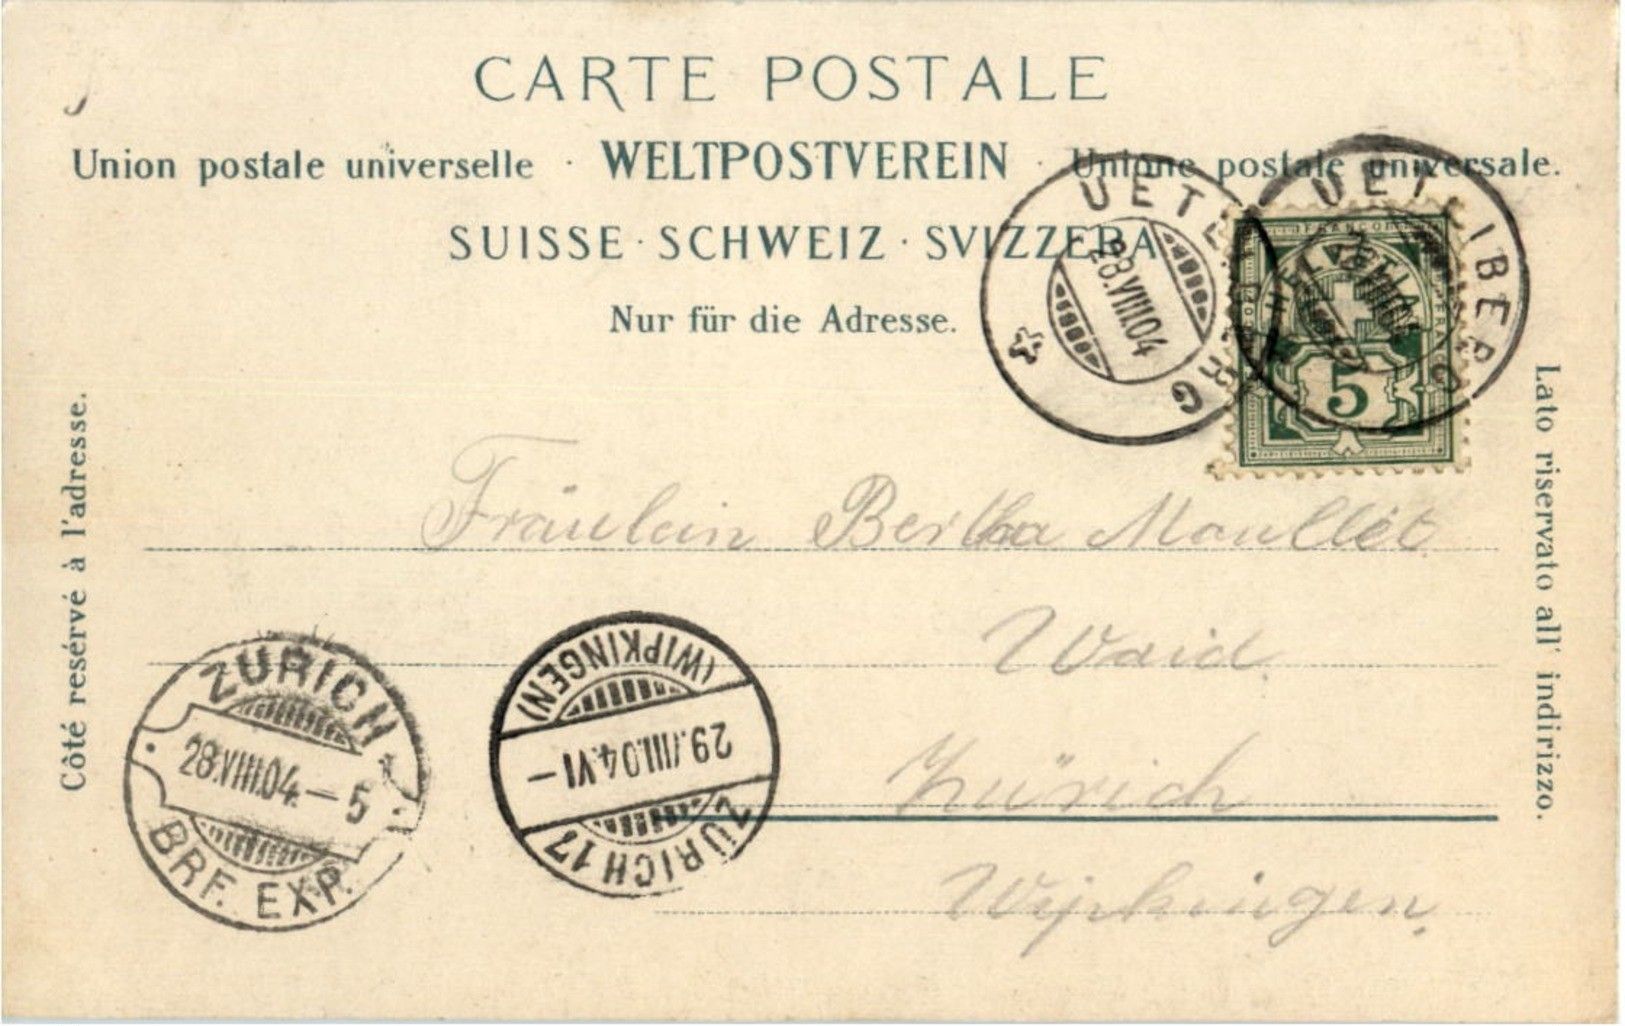 CARTE POSTALE
Union postale universelle · WELTPOSTVEREIN · Unione postale universale.
SUISSE · SCHWEIZ · SVIZZERA
Nur für die Adresse.
UETLIBERG
28.VIII.04
UETLIBERG
FRANCO
HELVETIA
5
Côté resérvé à l'adresse.
Lato riservato all' indirizzo.
Fräulein Bertha
Waid
Zürich
Wipkingen.
ZÜRICH
28.VIII.04.–5
BRF. EXP.
ZÜRICH 17
29.VIII.04.VI–
(WIPKINGEN)